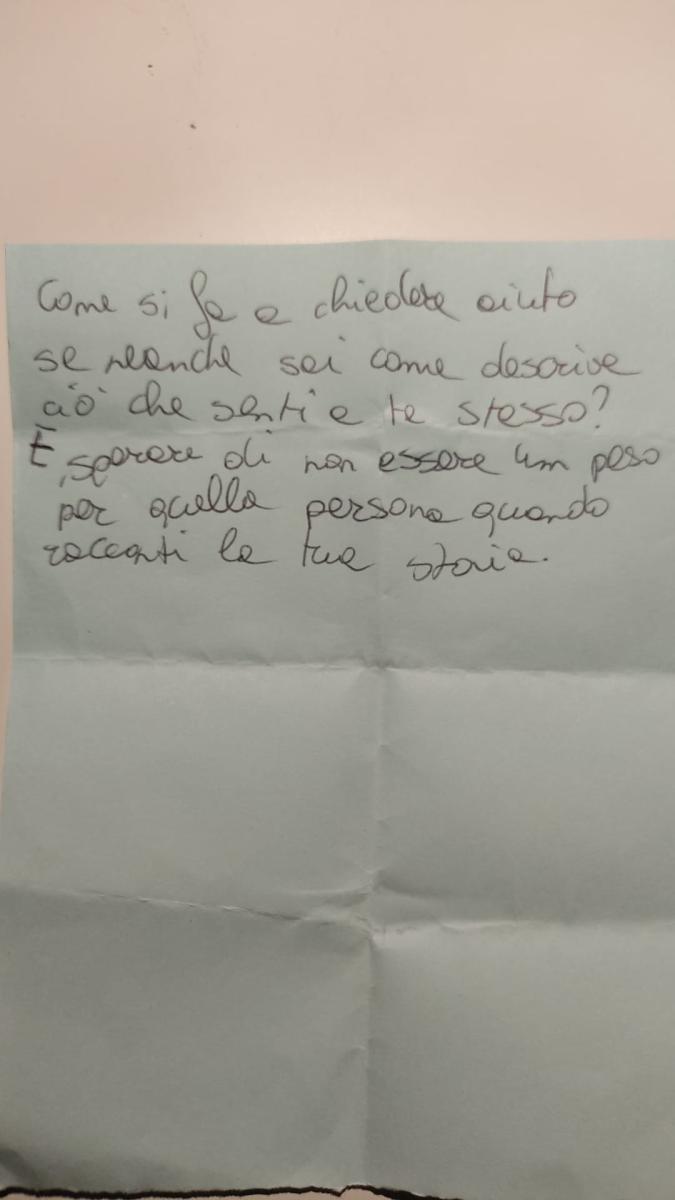 Come si fa a chiedere aiuto
se neanche sai come descrive
ciò che senti a te stesso?
E sperare di non essere un peso
per quella persona quando
racconti la tua storia.